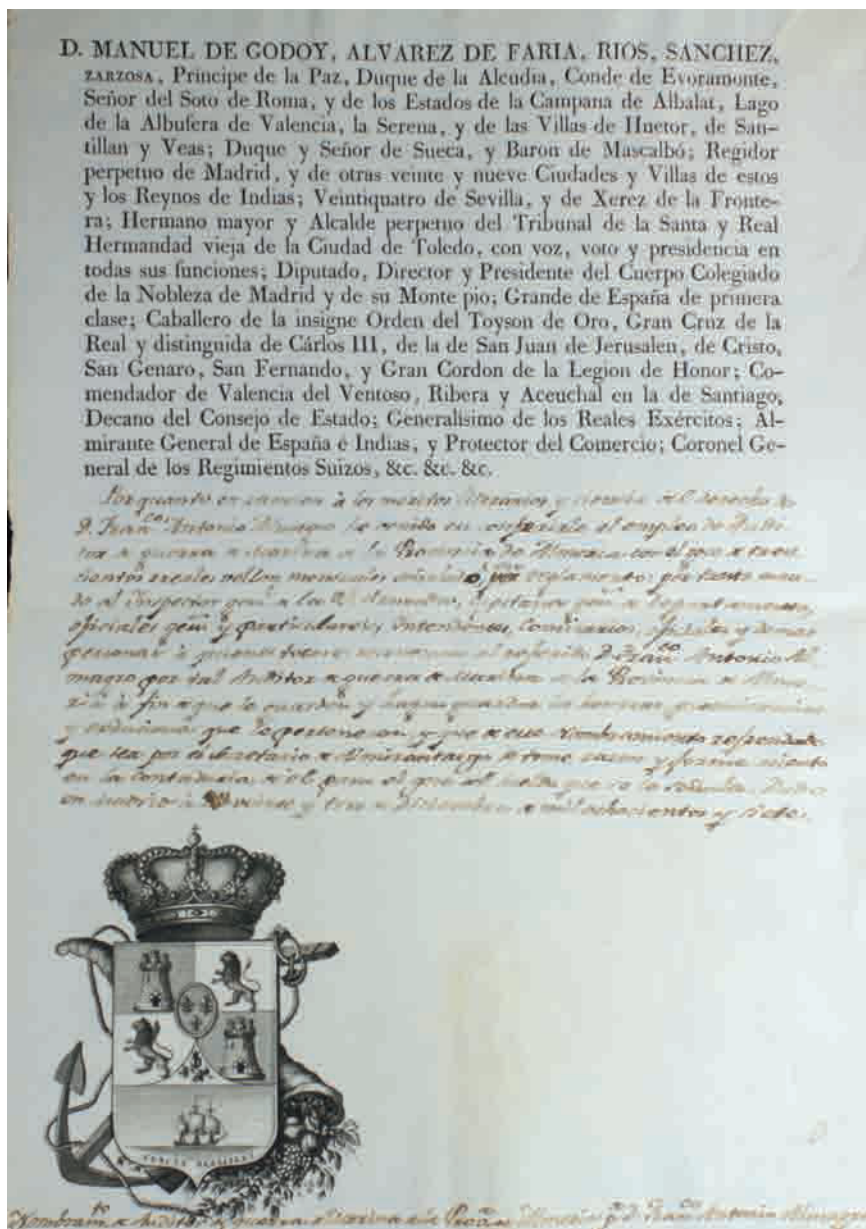 D. MANUEL DE GODOY, ALVAREZ DE FARIA, RIOS, SANCHEZ,
ZARZOSA, Príncipe de la Paz, Duque de la Alcudia, Conde de Evoramonte,
Señor del Soto de Roma, y de los Estados de la Campana de Albalat, Lago
de la Albufera de Valencia, la Serena, y de las Villas de Huetor, de San-
tillan y Veas; Duque y Señor de Sueca, y Baron de Mascalbó; Regidor
perpetuo de Madrid, y de otras veinte y nueve Ciudades y Villas de estos
y los Reynos de Indias; Veintiquatro de Sevilla, y de Xerez de la Fronte-
ra; Hermano mayor y Alcalde perpetuo del Tribunal de la Santa y Real
Hermandad vieja de la Ciudad de Toledo, con voz, voto y presidencia en
todas sus funciones; Diputado, Director y Presidente del Cuerpo Colegiado
de la Nobleza de Madrid y de su Monte pio; Grande de España de primera
clase; Caballero de la insigne Orden del Toyson de Oro, Gran Cruz de la
Real y distinguida de Cárlos III, de la de San Juan de Jerusalen, de Cristo,
San Genaro, San Fernando, y Gran Cordon de la Legion de Honor; Co-
mendador de Valencia del Ventoso, Ribera y Aceuchal en la de Santiago;
Decano del Consejo de Estado; Generalísimo de los Reales Exércitos; Al-
mirante General de España é Indias, y Protector del Comercio; Coronel Ge-
neral de los Regimientos Suizos, &c. &c. &c.
Por quanto en atencion à los meritos literarios y del derecho de
D. Fran.co Antonio he venido en conferirle el empleo de Audi-
tor de guerra de Marina de la Provincia de Almeria con el goze de tresci-
entos reales vellon mensuales por reglamento; por tanto man-
do al Inspector gen.l Capitanes gen.s de Departamento,
oficiales gen.s y particulares, Intendentes, Comisarios, y demas
personas à quienes tocare reconozcan al referido D. Fran.co Antonio Al-
magro por tal Auditor de guerra de Marina de la Provincia de Alme-
ria à fin de que le guarden y hagan guardar
y que le pertenecen y que de este Nombramiento refrendado
que sea por el Secretario de Almirantazgo se tome razon y forme asiento
en la Contaduria
en Madrid à veinte y tres de Diciembre de mil ochocientos y siete.
Nombram.to de Auditor de guerra de Marina de la Prov.a de Almeria p.a D. Fran.co Antonio Almagro